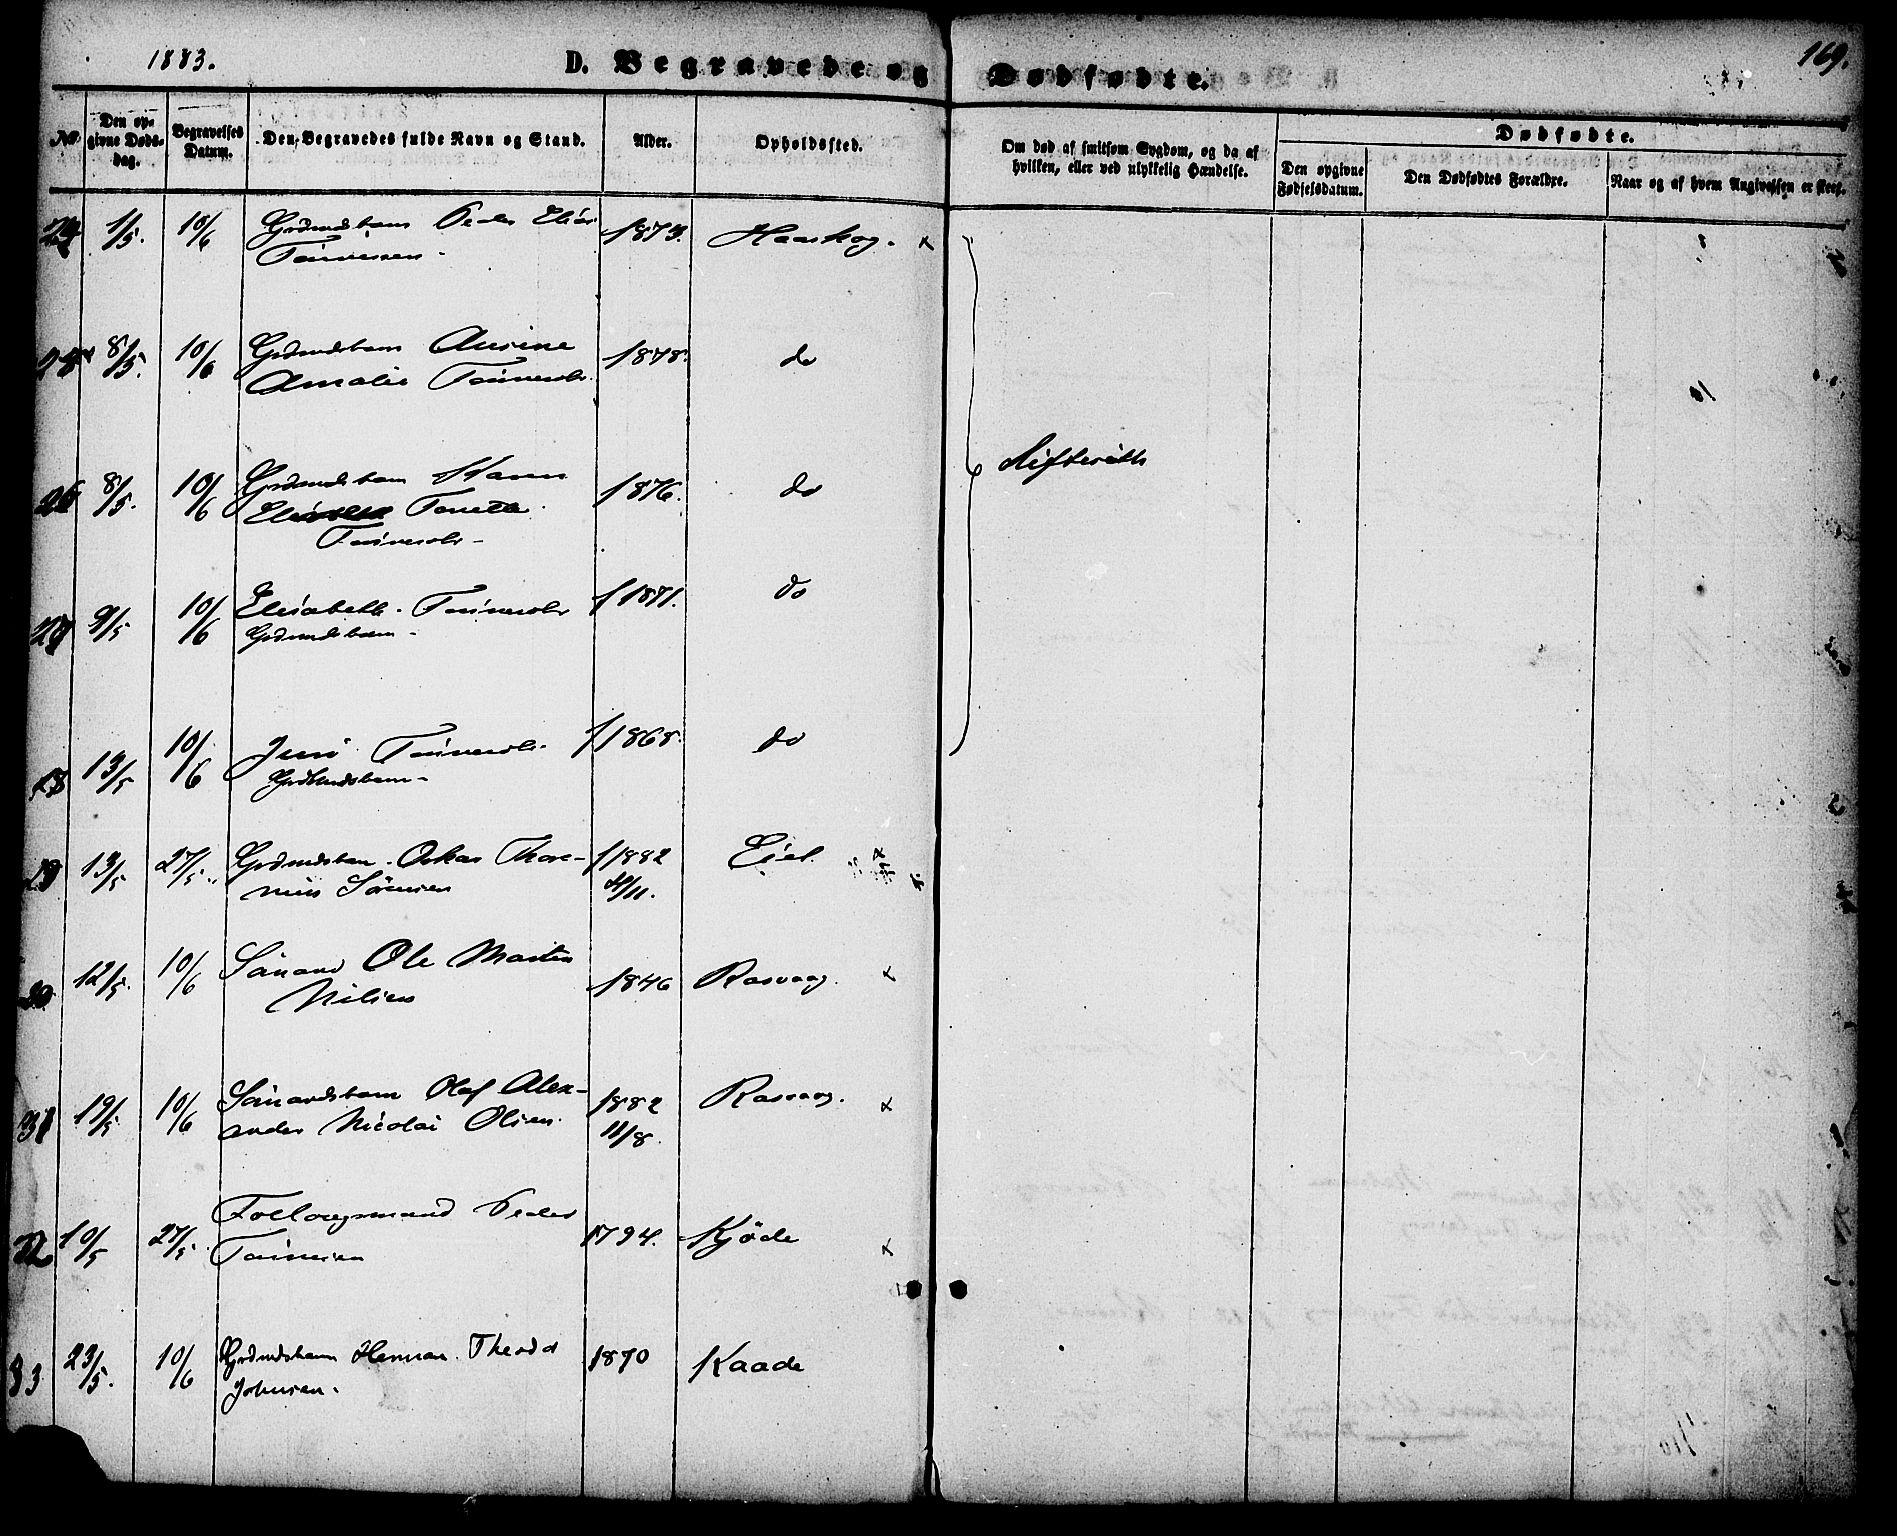 1883.
D. Begravede og Dødfødte.
169.
No
Den opgivne Dødsdag.
Begravelses Datum.
Den Begravedes fulde Navn og Stand.
Alder.
Opholdssted.
Om død af smitsom Sygdom, og da af hvilken, eller ved ulykkelig Hændelse.
Dødfødte.
Den opgivne Fødselsdatum.
Den Dødfødtes Forældre.
Naar og af hvem Angivelsen er skeet.
24 1/5. 10/6 Grdmdsbarn Peder Elias 1873. Haaskog. x
Tønnessen.
8/5. 10/6 Grdmdsbarn 1878. do
Amalie Tønnesdr.
Difterith
26 8/5. 10/6 Grdmdsbarn Karen 1876. do
Tonette
Tønnesdr
27 9/5 10/6 Elisabeth Tønnesdr 1871. do
Grdmdsbarn
28 13/5 10/6 Tønnesdr. 1868. do
Grdmdsbarn
29 13/5 27/5. Grdmdsbarn. Oskar Thore- 1882 Eiet.
nius Sørensen /11.
30 12/5. 10/6 Sømand Ole Martin 1846 Rasvaag. x
Nilsen
31 19/5 10/6 Sømandsbarn Olaf Alex- 1882 Rasvaag. x
ander Nicolai Olsen. 11/8.
32 19/5 27/5. Føderaadsmand Peder 1794. Kjøde x
Tønnesen
33 23/5. 10/6 Grdmdsbarn Herman Theodor 1870 Kaade
Johnsen.